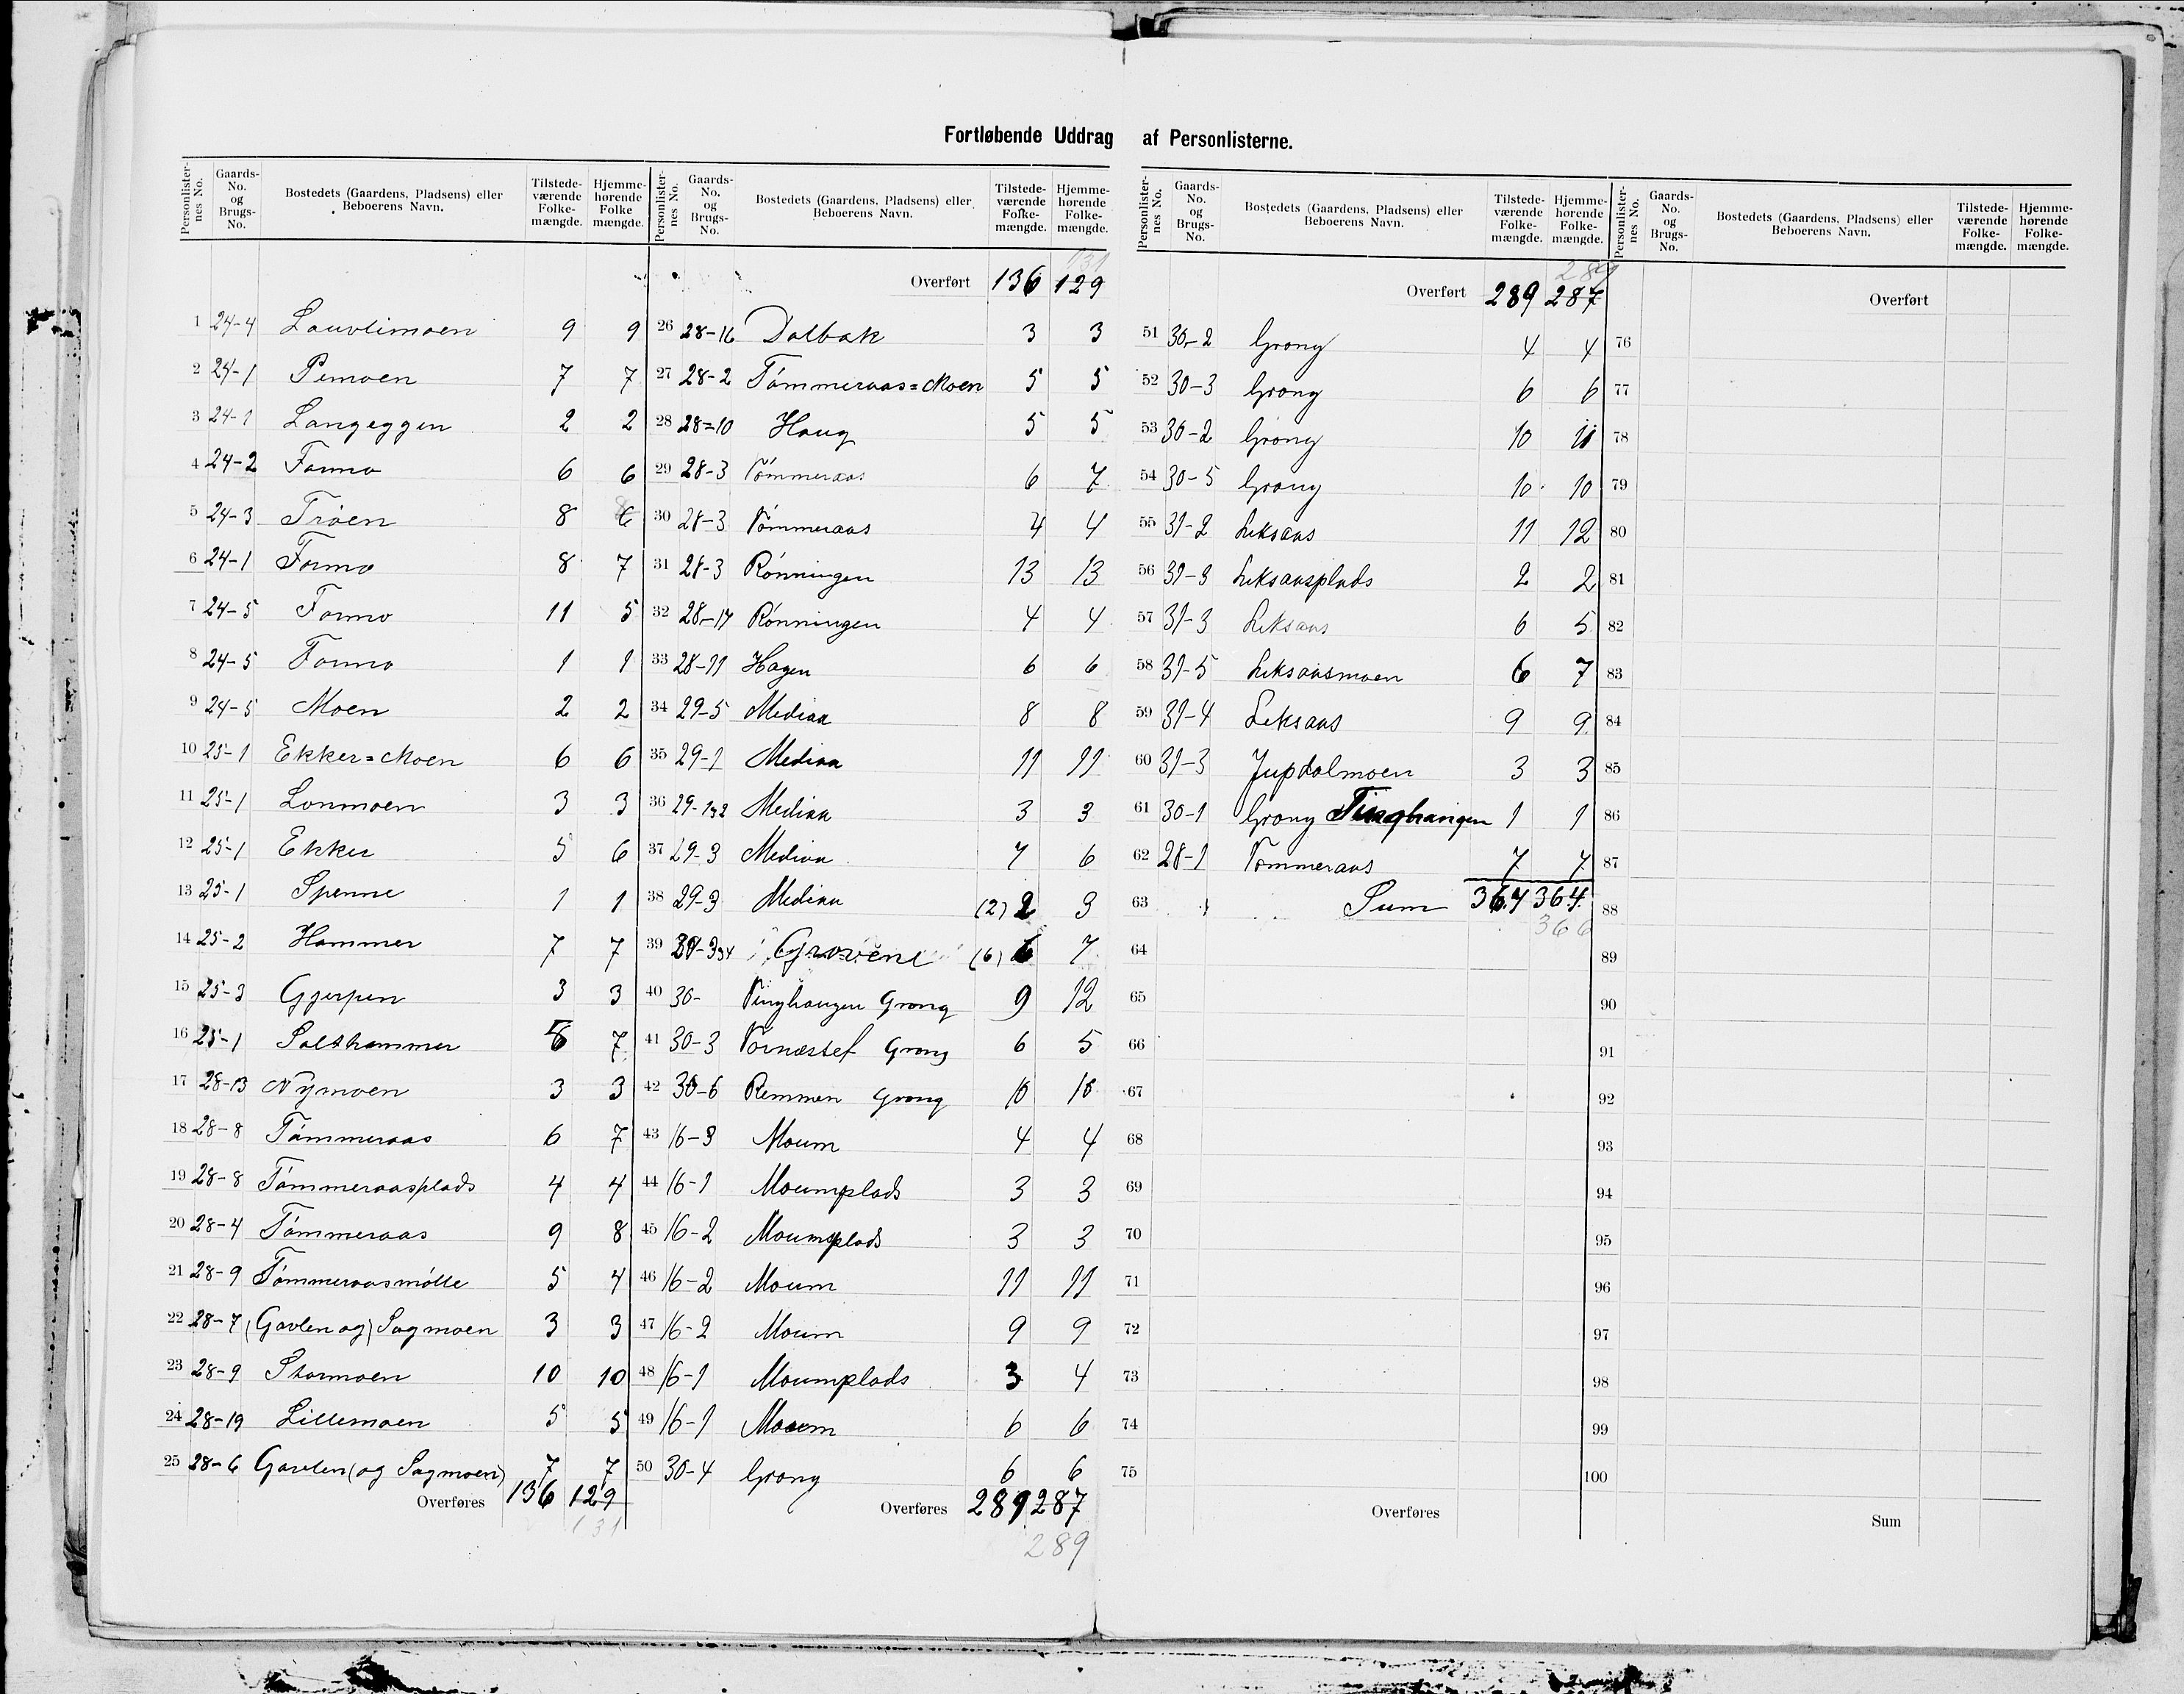 Fortløbende Uddrag af Personlisterne.
Personlisternes No. Gaards-No. og Brugs-No. Bostedets (Gaardens, Pladsens) eller Beboerens Navn. Tilstedeværende Folkemængde. Hjemmehørende Folkemængde.
1 24-4 Louvlimoen 9 9
2 24-1 Pemoen 7 7
3 24-1 Langeggen 2 2
4 24-2 Formo 6 6
5 24-3 Trøen 8 6 8
6 24-1 Formo 8 7
7 24-5 Formo 11 5
8 24-5 Formo 1 1
9 24-5 Moen 2 2
10 25-1 Ekker=Moen 6 6
11 25-1 Lonmoen 3 3
12 25-1 Ekker 5 6
13 25-1 Spenne 1 1
14 25-2 Hammer 7 7
15 25-3 Gjerpen 3 3
16 25-1 Solthammer 5 7
17 28-13 Nymoen 3 3
18 28-8 Tømmeraas 6 7
19 28-8 Tømmeraasplads 4 4
20 28-4 Tømmeraas 9 8
21 28-9 Tømmeraasmølle 5 4
22 28-7 (Gavlen og) Sagmoen 3 3
23 28-9 Stormoen 10 10
24 28-19 Lillemoen 5 5
25 28-6 Gavlen (og Sagmoen) 7 7
Overføres 136 129
131
Personlisternes No. Gaards-No. og Brugs-No. Bostedets (Gaardens, Pladsens) eller Beboerens Navn. Tilstedeværende Folkemængde. Hjemmehørende Folkemængde.
131
Overført 136 129
26 28-16 Dalbak 3 3
27 28-2 Tømmeraas=Moen 5 5
28 28=10 Haug 5 5
29 28-3 Tømmeraas 6 7
30 28-3 Tømmeraas 4 4
31 28-3 Rønningen 13 13
32 28-17 Rønningen 4 4
33 28-11 Hagen 6 6
34 29-5 Mediaa 8 8
35 29-1 Mediaa 11 11
36 29-1&2 Mediaa 3 3
37 29-3 Mediaa 7 6
38 29-3 Mediaa (2) 2 3
39 29-3&4 Grovene (6) 6 7
40 30- Tinghaugen Grong 9 12
41 30-3 Tornæstef Grong 6 5
42 30-6 Remmen Grong 10 10
43 16-3 Moum 4 4
44 16-1 Moumplads 3 3
45 16-2 Moumsplads 3 3
46 16-2 Moum 11 11
47 16-2 Moum 9 9
48 16-1 Moumplads 3 4
49 16-1 Moum 6 6
50 30-4 Grong 6 6
Overføres 289 287
289
Personlisternes No. Gaards-No. og Brugs-No. Bostedets (Gaardens, Pladsens) eller Beboerens Navn. Tilstedeværende Folkemængde. Hjemmehørende Folkemængde.
289
Overført 289 287
51 30-2 Grong 4 4
52 30-3 Grong 6 6
53 30-2 Grong 10 11
54 30-5 Grong 10 10
55 31-2 Leksaas 11 12
56 31-3 Leksaasplads 2 2
57 31-3 Leksaas 6 5
58 31-5 Leksaasmoen 6 7
59 31-4 Leksaas 9 9
60 31-3 Jupdalmoen 3 3
61 30-1 Grong Tinghaugen 1 1
62 28-1 Tømmeraas 7 7
63 Sum 364 364
366
64
65
66
67
68
69
70
71
72
73
74
75
Overføres
Personlisternes No. Gaards-No. og Brugs-No. Bostedets (Gaardens, Pladsens) eller Beboerens Navn. Tilstedeværende Folkemængde. Hjemmehørende Folkemængde.
Overført
76
77
78
79
80
81
82
83
84
85
86
87
88
89
90
91
92
93
94
95
96
97
98
99
100
Sum